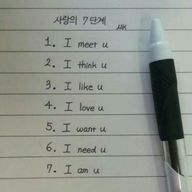 사랑의 7 단계
MK
1. I meet u
2. I think u
3. I like u
4. I love u
5. I want u
6. I need u
7. I am u